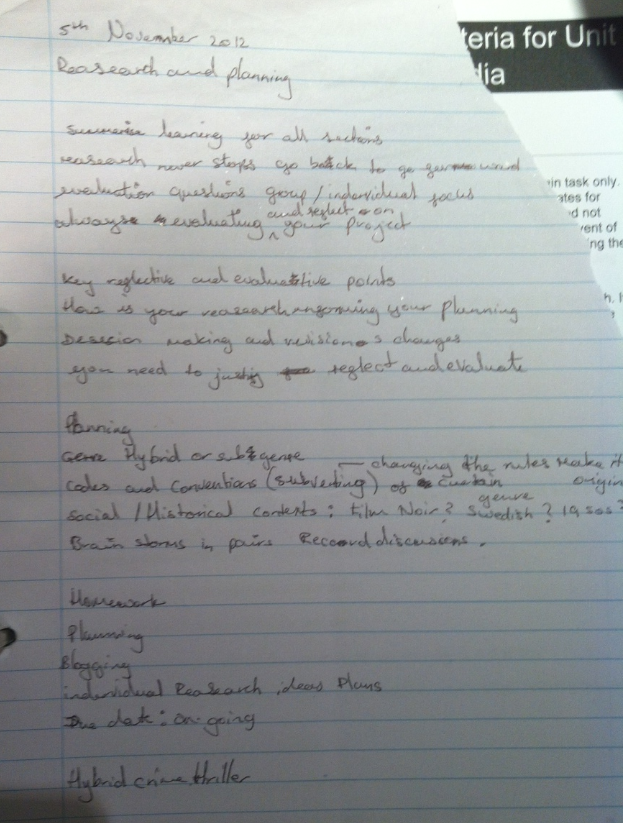 5th November 2012
Reasearch and planning
Summarise learning for all sections
reasearch never stops go back to go
evaluation questions group / individual focus
always evaluating and reflect on your project
Key reflective and evaluative points
How is your reasearch your planning
Desecion making and revisions changes
you need to justify reflect and evaluate
Planning
Genre Hybrid or subgenre
— changing the rules make it
Codes and Conventions (subverting) of curtain genre origin
Social / Historical contexts : Film Noir? Swedish? 1950s?
Brain storms in pairs Record discussions.
Homework
Planning
Blogging
individual Reasearch ideas Plans
Due date : on going
Hybrid crime thriller
teria for Unit
dia
in task only.
ates for
d not
vent of
ing the